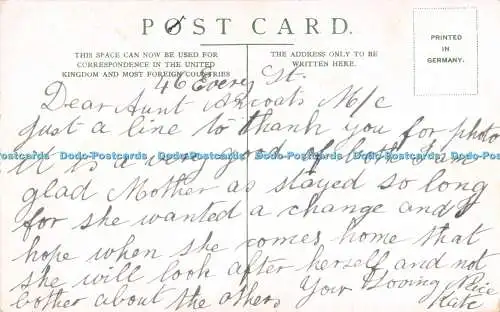 POST CARD.
PRINTED
IN
GERMANY.
THIS SPACE CAN NOW BE USED FOR
CORRESPONDENCE IN THE UNITED
KINGDOM AND MOST FOREIGN COUNTRIES
THE ADDRESS ONLY TO BE
WRITTEN HERE.
46 Every St.
Dear Aunt Ancoats M/c
just a line to thank you for photo
it is a very good of both I am
Dodo-Postcards Dodo-Postcards Dodo-Postcards Dodo-Postcards Dodo-Postcards Dodo-Postcards
glad Mother as stayed so long
for she wanted a change and I
hope when she comes home that
she will look after herself and not
bother about the others Your Loving Niece
Kate